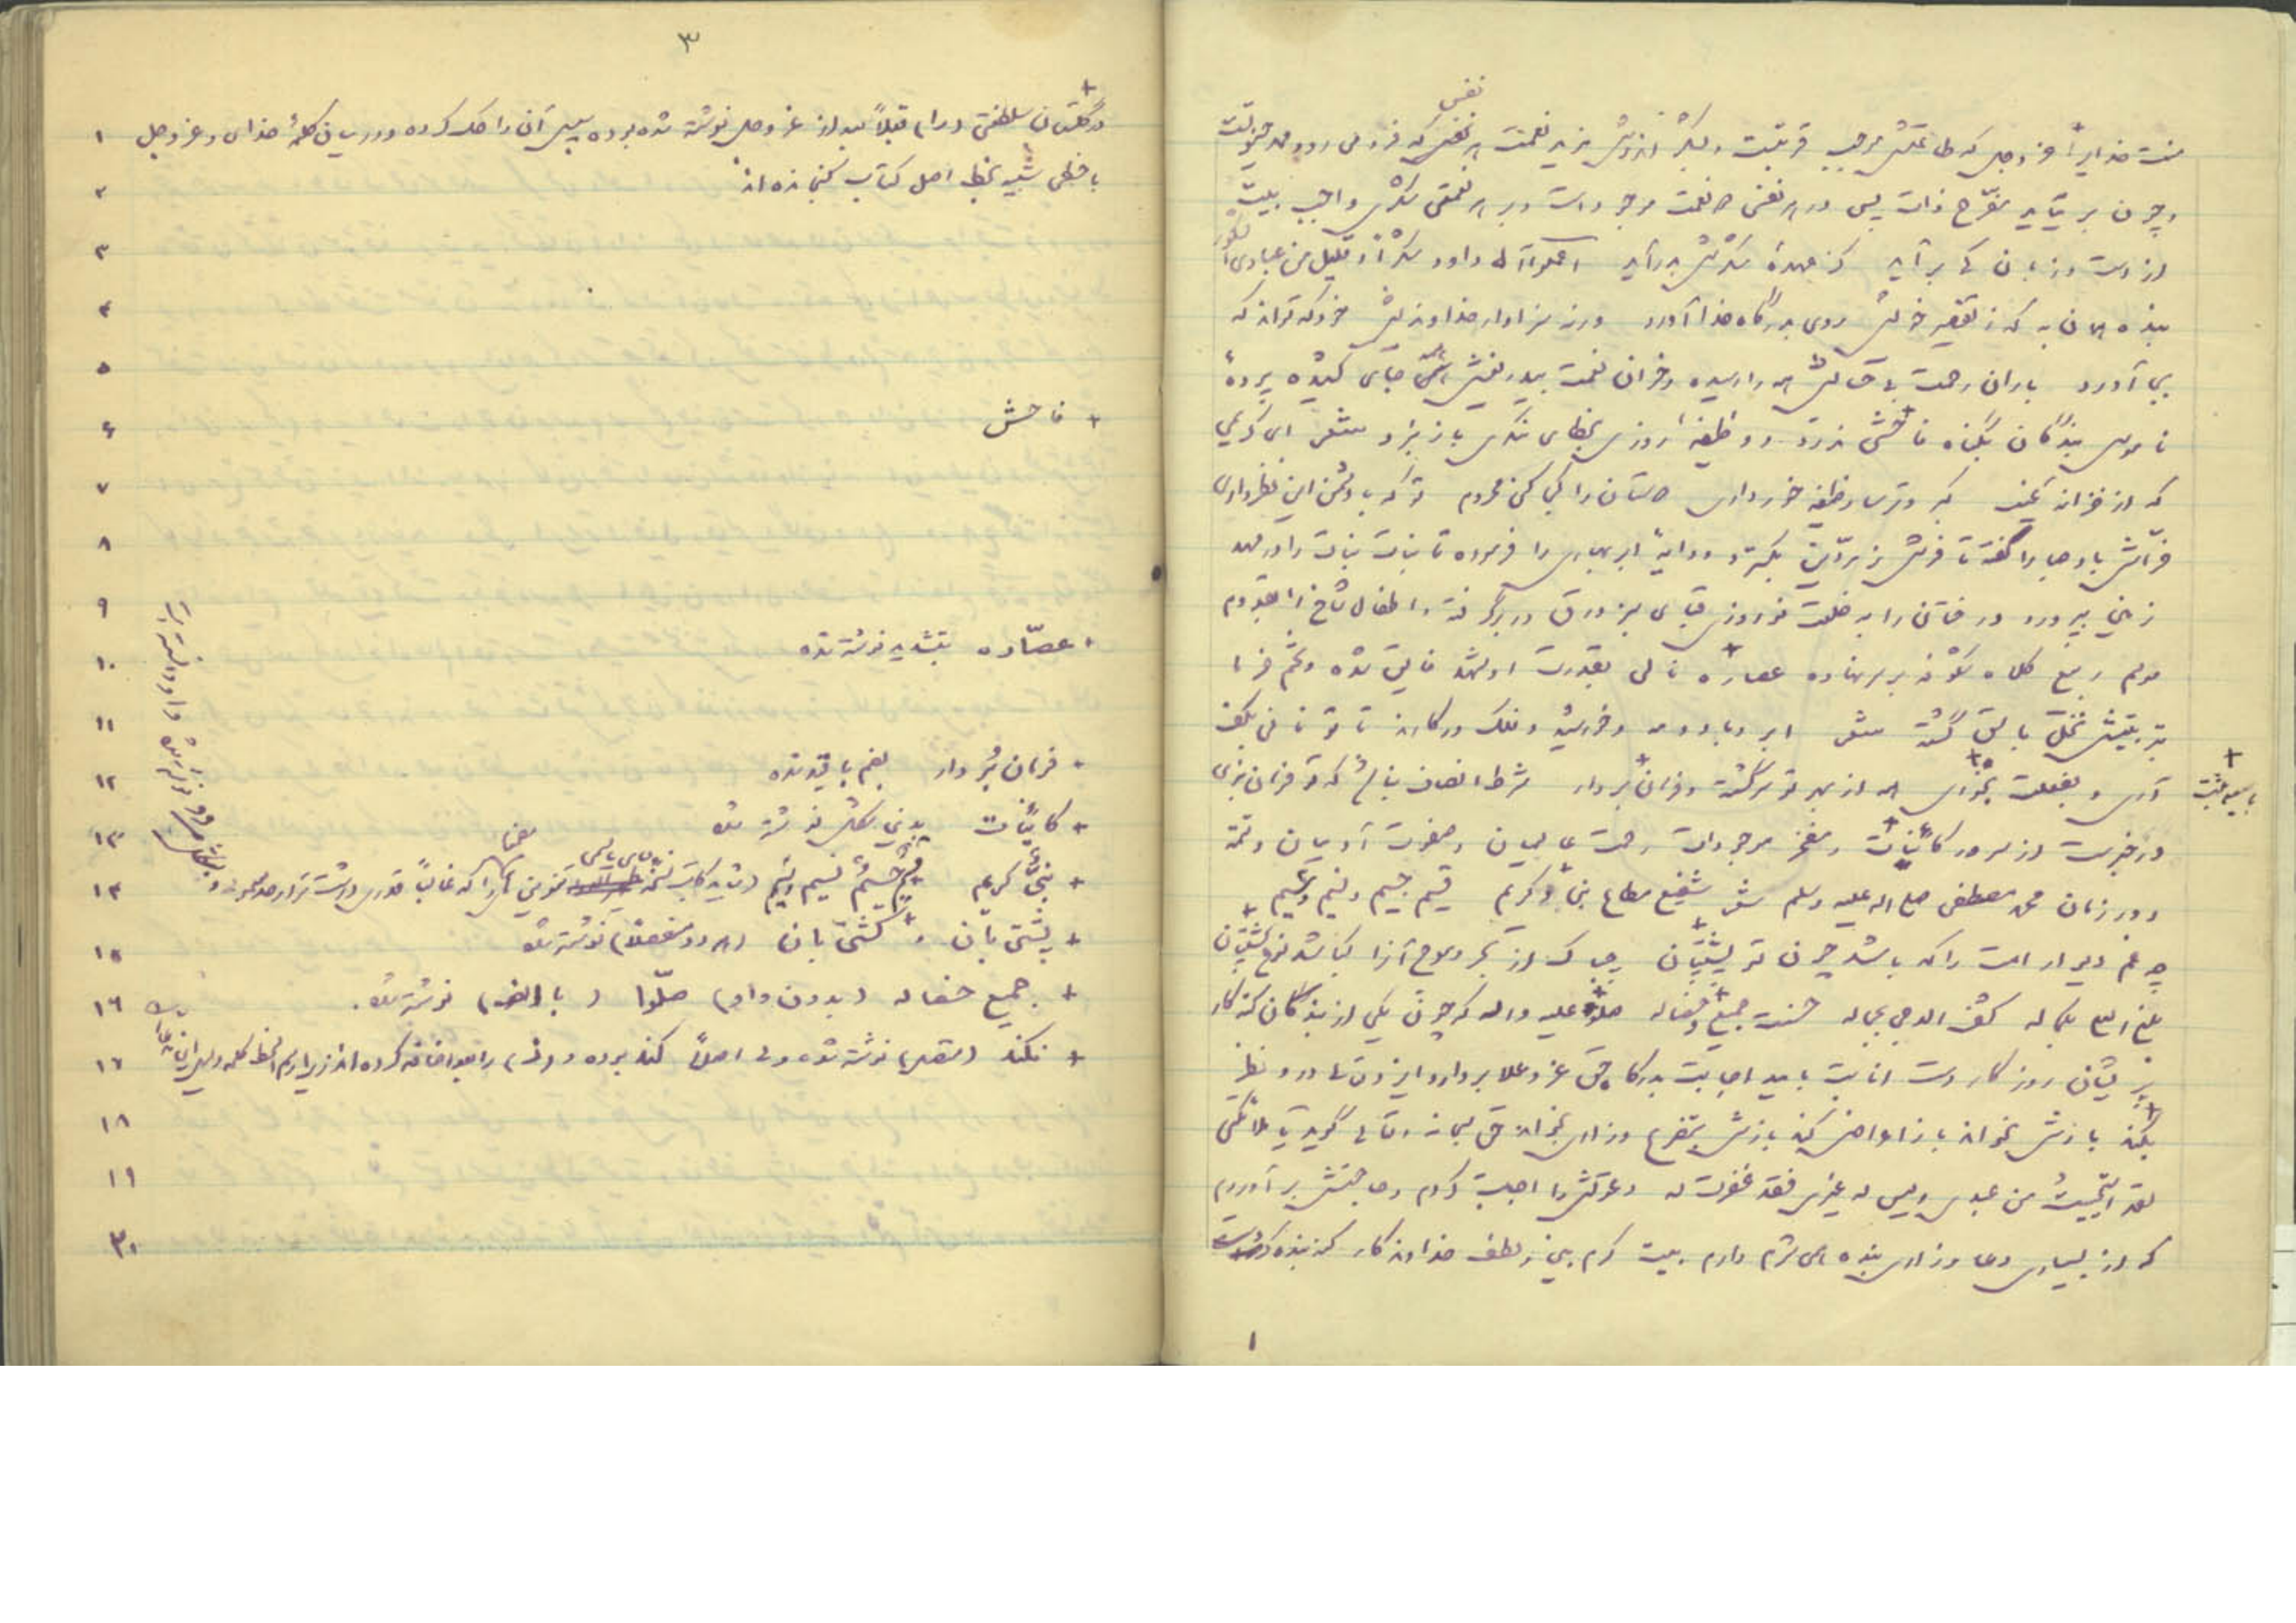 نفس
منت خدایرا عز و جل که طاعتش موجب قربتست و بشکر اندرش مزید نعمت هر نفسی که فرو می رود ممد حیوتست
و چون بر میآید مفرّح ذات پس در هر نفسی دو نعمت موجود است و بر هر نعمتی شکری واجب بیت
از دست و زبان که برآید کز عهدهٔ شکرش بدرآید اعملوا آل داود شکراً و قلیل من عبادی الشکور
بنده همان به که ز تقصیر خویش روی بدرگاه خدا آورد ورنه سزاوار خداوندیش خود که تواند که
بجای آورد باران رحمت بی حسابش همه را رسیده و خوان نعمت بیدریغش همه جای کشیده پردهٔ
ناموس بندگان بگناه فاحش ندرد و وظیفهٔ روزی بخطای منکر باز نبرد شعر ای کریمی
که از خزانه غیب گبر و ترسا وظیفه خور داری دوستان را کجا کنی محروم تو که با دشمن این نظر داری
فرّاش باد صبا را گفته تا فرش زمردّین بگسترد و دایهٔ ابر بهاری را فرموده تا بنات نبات را در مهد
زمین بپرورد درختان را به خلعت نوروزی قبای سبز ورق در برگرفته و اطفال شاخ را بقدوم
موسم ربیع کلاه شکوفه بر سر نهاده عصاره نالی بقدرت او شهد فایق شده و تخم خرما
بتربیتش نخل باسق گشته شعر ابر و باد و مه و خورشید و فلک در کارند تا تو نانی بکف
آری و بغفلت نخوری همه از بهر تو سرگشته و فرمان بردار شرط انصاف نباشد که تو فرمان نبری
در خبرست از سرور کاینات و مفخر موجودات رحمت عالمیان و صفوت آدمیان و تتمه
دور زمان محمد مصطفی صلی الله علیه وسلم شعر شفیع مطاع نبی کریم قسیم جسیم نسیم وسیم
چه غم دیوار امت را که باشد چون تو پشتیبان چه باک از بحر موج آنرا که باشد نوح کشتیبان
بلغ العلی بکماله کشف الدجی بجماله حسنت جمیع خصاله صلوا علیه و آله که چون یکی از بندگان گنه کار
پریشان روزگار دست انابت بامید اجابت بدرگاه حق عز و علا بردارد ایزد تعالی در وی نظر
نکند بازش بخواند باز اعراض کند بازش بتضرع و زاری بخواند حق سبحانه و تعالی گوید یا ملائکتی
لقد استحییت من عبدی و لیس له غیری فقد غفرت له دعوتش را اجابت کردم و حاجتش برآوردم
که از بسیاری دعا و زاری بنده همی شرم دارم بیت کرم بین و لطف خداوندگار گنه بنده کردست
۱
۳
۱ در گلستان سلطنتی (را) قبلاً بعد از عز و جل نوشته شده بوده سپس آن را حک کرده و در میان کلمهٔ خدای و عز و جل
۲ با خطی شبیه بخط اصل کتاب گنجانده اند
۳
۴
۵
۶ + فاحش
۷
۸
۹
۱۰ + عصّاره بتشدید نوشته شده
۱۱
۱۲ + فرمان بُردار بضم با قید شده
۱۳ + کاینات بدین شکل نوشته شده
۱۴ + نبیٌّ کریم
۱۵ + پشتی بان و + کشتی بان (هر دو منفصلاً) نوشته شده
۱۶ + جمیع خصاله (بدون واو) صلّوا (با الف) نوشته شده.
۱۷ + نکند (متصل) نوشته شده
۱۸
۱۹
۲۰